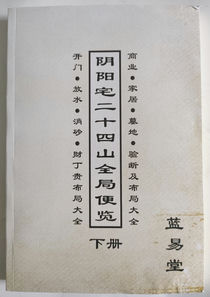 商业·家居·墓地·验断及布局大全
阴阳宅二十四山全局便览
开门·放水·消砂·财丁贵布局大全
下册
蓝易堂